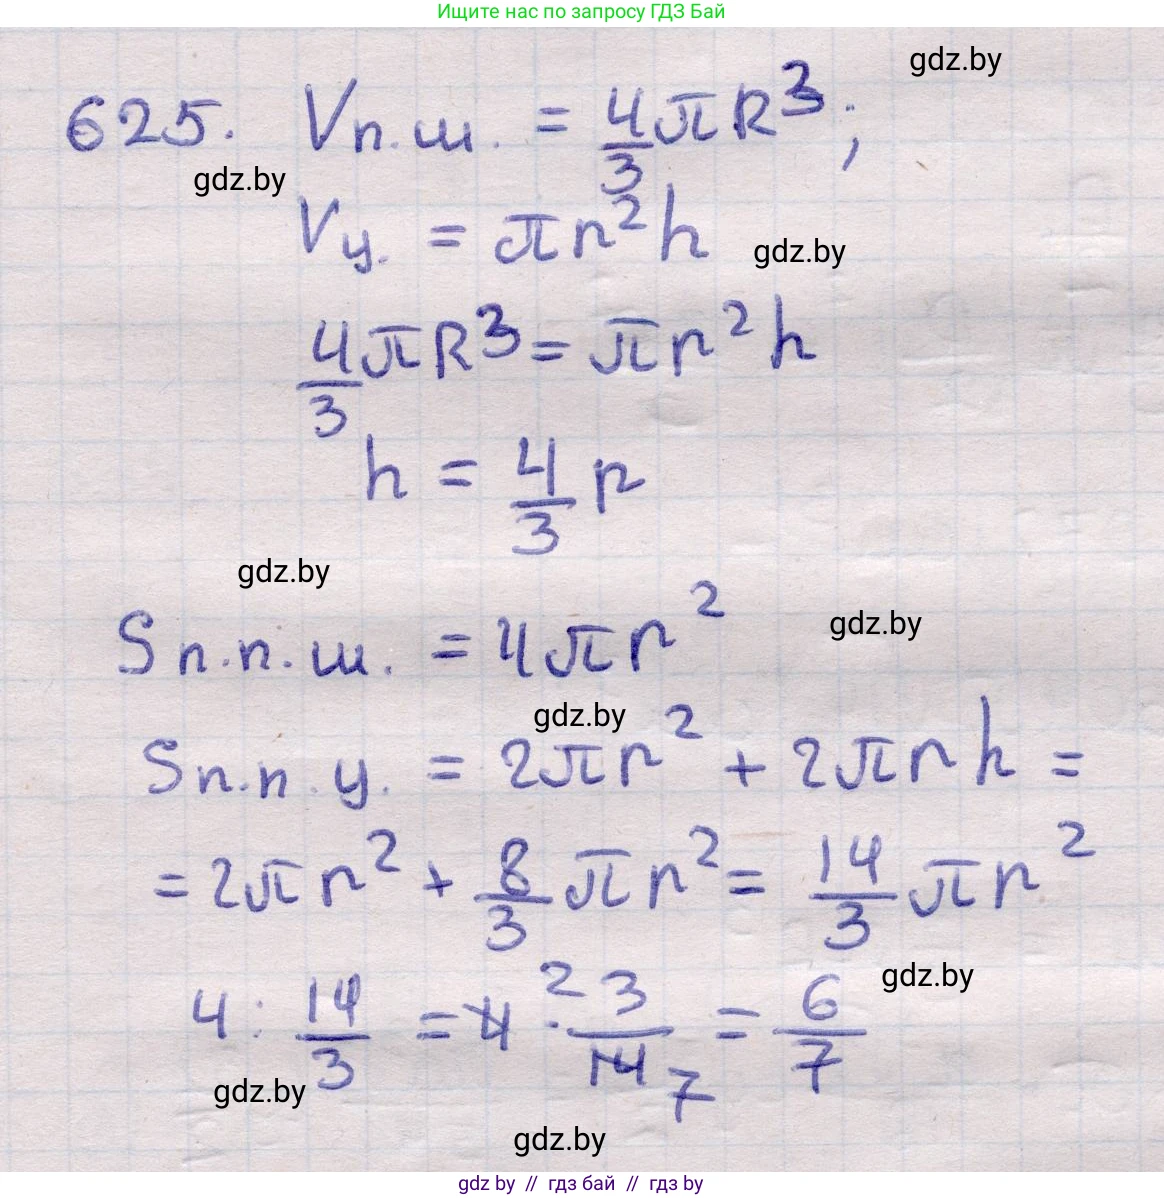 Ищите нас по запросу ГДЗ Бай
gdz.by
625. Vп.ш. = 4/3 πR³;
gdz.by
Vу. = πr²h
gdz.by
4/3 πR³ = πr²h
h = 4/3 r
gdz.by
gdz.by
Sп.п.ш. = 4πr²
gdz.by
Sп.п.у. = 2πr² + 2πrh =
= 2πr² + 8/3 πr² = 14/3 πr²
gdz.by
4 : 14/3 = 4 2 · 3/14 7 = 6/7
gdz.by
gdz.by
gdz by // гдз бай // gdz by